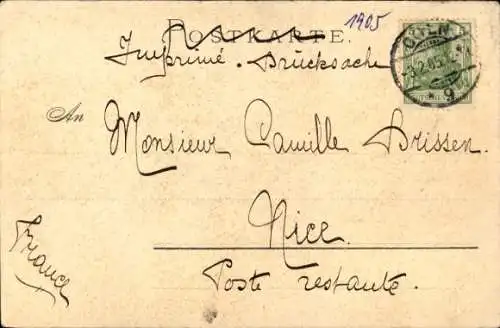 1905
POSTKARTE.
Imprimé - Drucksache
CÖLN
3.2.05.
* 9
An
Monsieur Camille Brissen.
Nice.
Poste restante.
France